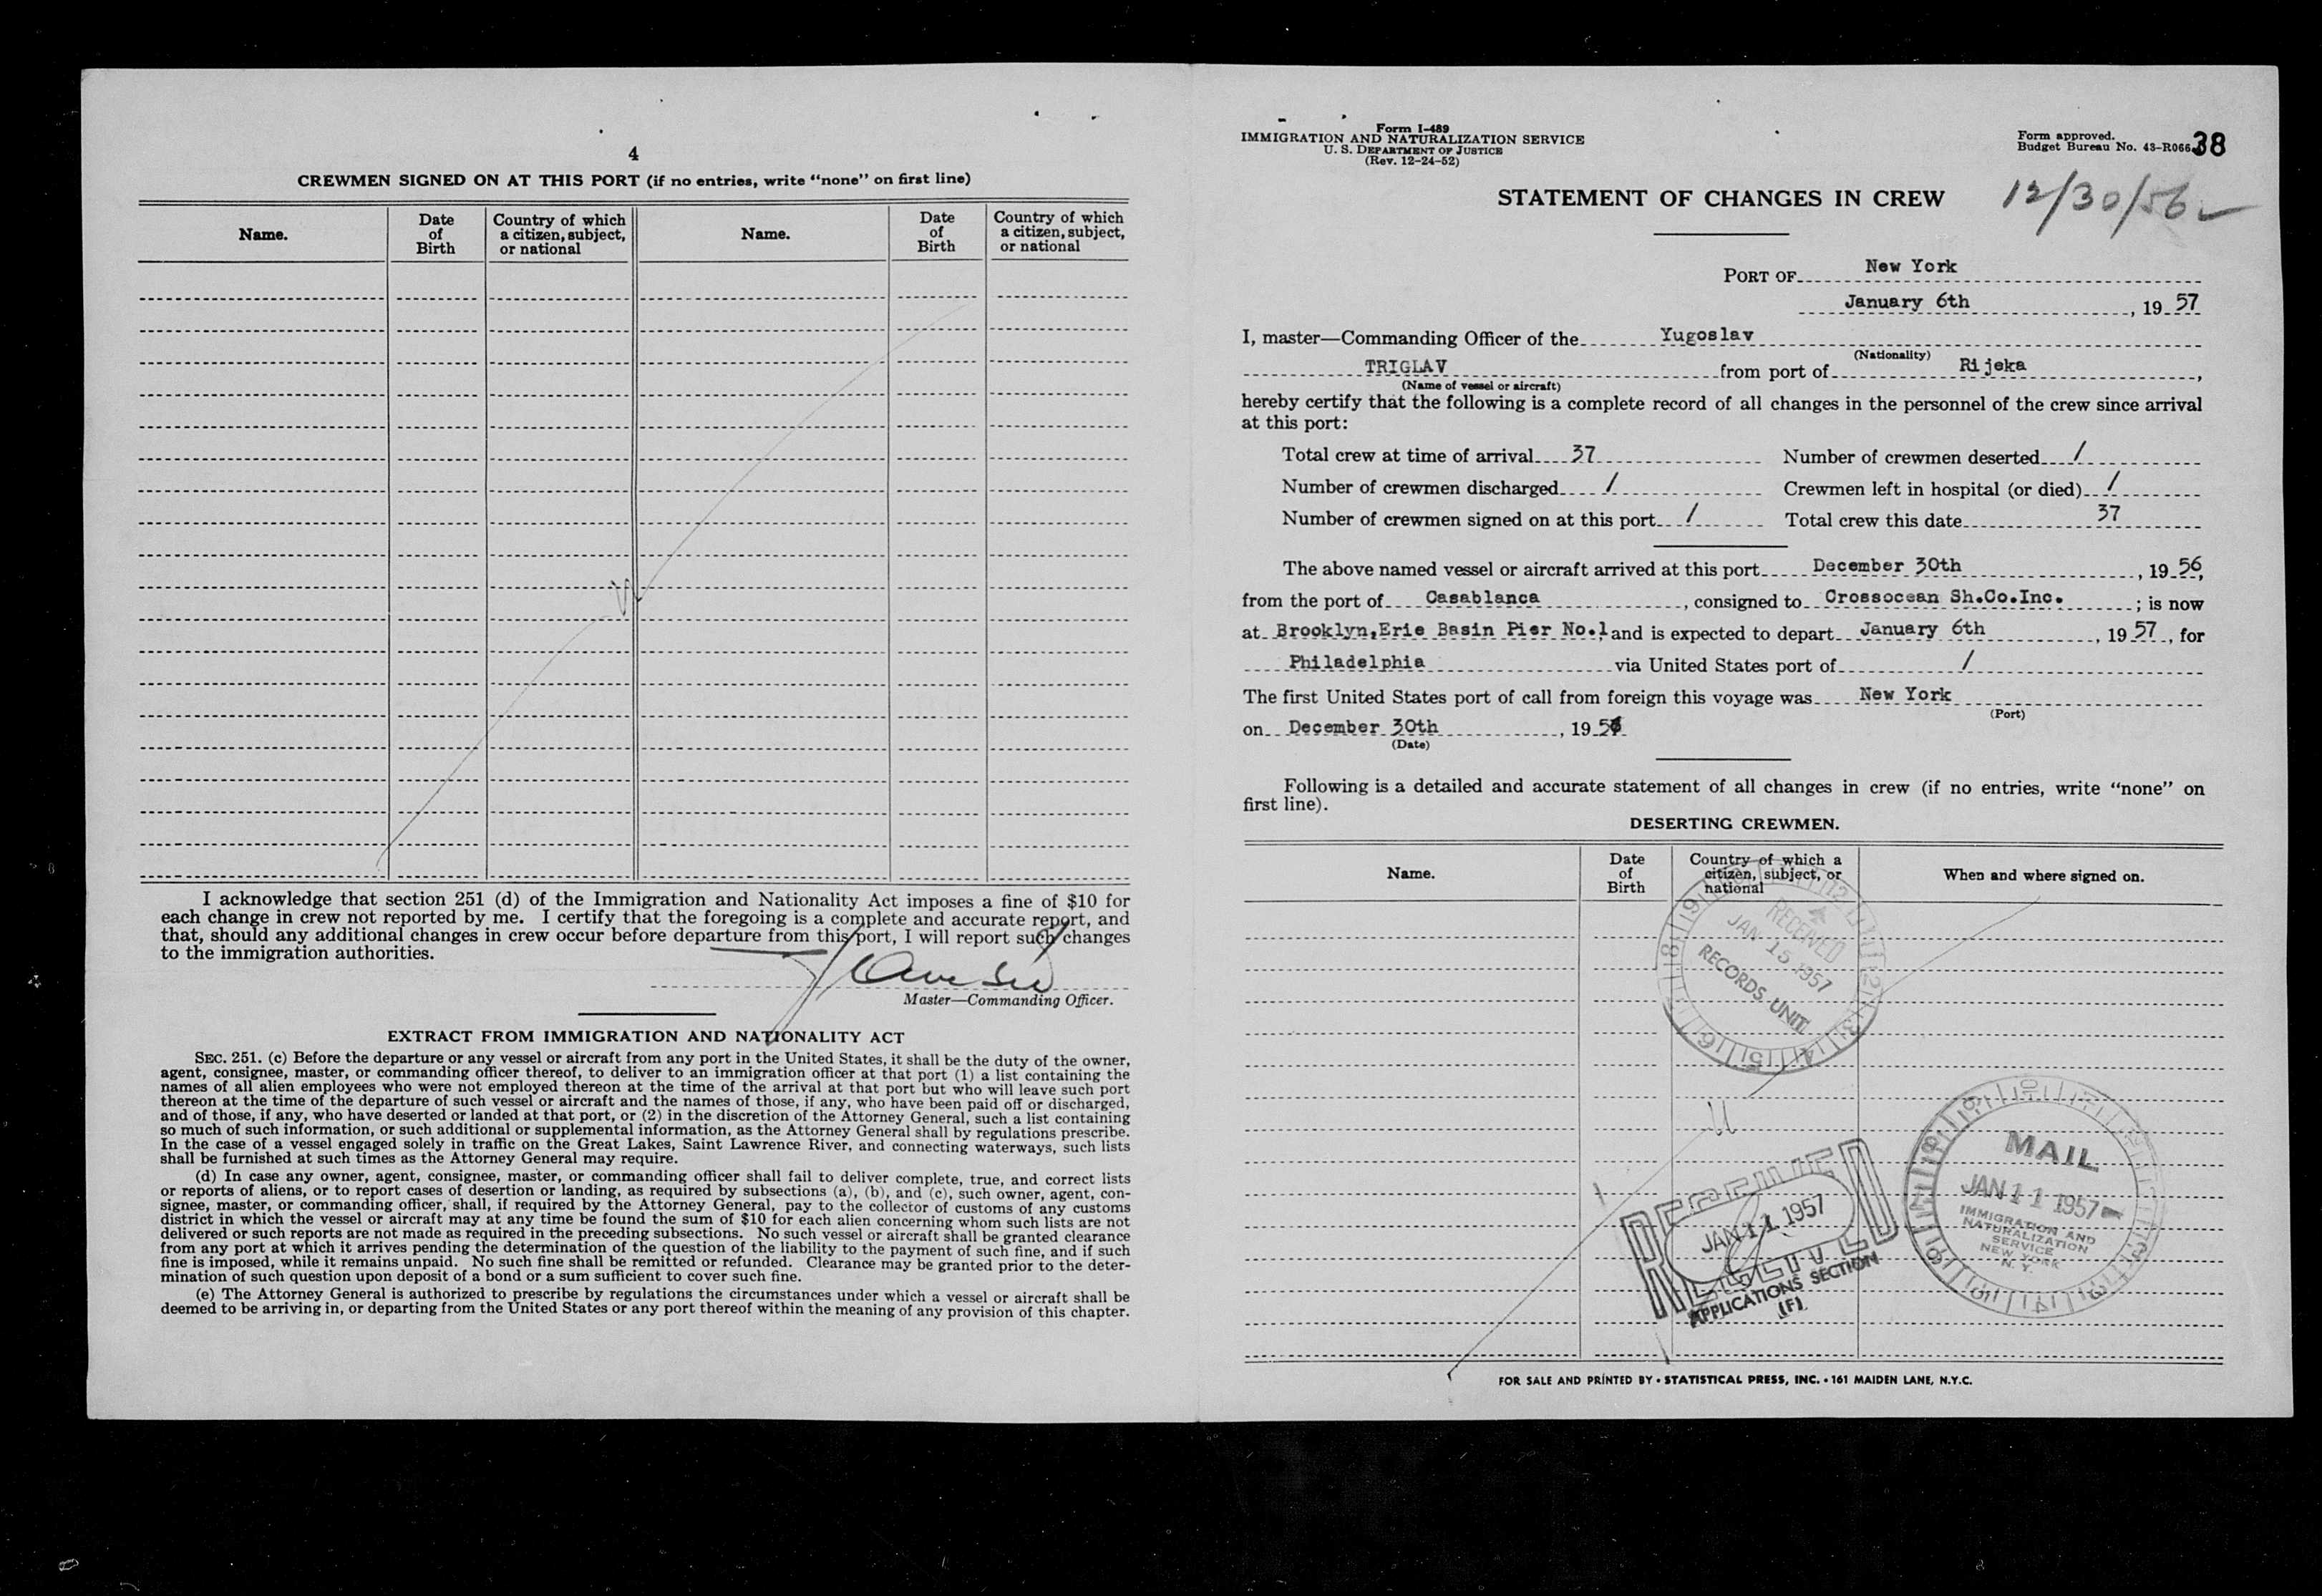 4
CREWMEN SIGNED ON AT THIS PORT (if no entries, write “none” on first line)
Name.
Date
of
Birth
Country of which
a citizen, subject,
or national
Name.
Date
of
Birth
Country of which
a citizen, subject,
or national
I acknowledge that section 251 (d) of the Immigration and Nationality Act imposes a fine of $10 for
each change in crew not reported by me. I certify that the foregoing is a complete and accurate report, and
that, should any additional changes in crew occur before departure from this port, I will report such changes
to the immigration authorities.
Master—Commanding Officer.
EXTRACT FROM IMMIGRATION AND NATIONALITY ACT
SEC. 251. (c) Before the departure or any vessel or aircraft from any port in the United States, it shall be the duty of the owner,
agent, consignee, master, or commanding officer thereof, to deliver to an immigration officer at that port (1) a list containing the
names of all alien employees who were not employed thereon at the time of the arrival at that port but who will leave such port
thereon at the time of the departure of such vessel or aircraft and the names of those, if any, who have been paid off or discharged,
and of those, if any, who have deserted or landed at that port, or (2) in the discretion of the Attorney General, such a list containing
so much of such information, or such additional or supplemental information, as the Attorney General shall by regulations prescribe.
In the case of a vessel engaged solely in traffic on the Great Lakes, Saint Lawrence River, and connecting waterways, such lists
shall be furnished at such times as the Attorney General may require.
(d) In case any owner, agent, consignee, master, or commanding officer shall fail to deliver complete, true, and correct lists
or reports of aliens, or to report cases of desertion or landing, as required by subsections (a), (b), and (c), such owner, agent, con-
signee, master, or commanding officer, shall, if required by the Attorney General, pay to the collector of customs of any customs
district in which the vessel or aircraft may at any time be found the sum of $10 for each alien concerning whom such lists are not
delivered or such reports are not made as required in the preceding subsections. No such vessel or aircraft shall be granted clearance
from any port at which it arrives pending the determination of the question of the liability to the payment of such fine, and if such
fine is imposed, while it remains unpaid. No such fine shall be remitted or refunded. Clearance may be granted prior to the deter-
mination of such question upon deposit of a bond or a sum sufficient to cover such fine.
(e) The Attorney General is authorized to prescribe by regulations the circumstances under which a vessel or aircraft shall be
deemed to be arriving in, or departing from the United States or any port thereof within the meaning of any provision of this chapter.
Form I-489
IMMIGRATION AND NATURALIZATION SERVICE
U. S. DEPARTMENT OF JUSTICE
(Rev. 12-24-52)
Form approved.
Budget Bureau No. 43-R066
38
STATEMENT OF CHANGES IN CREW
12/30/56
PORT OF New York
January 6th, 19 57
I, master—Commanding Officer of the Yugoslav
(Nationality)
TRIGLAV from port of Rijeka,
(Name of vessel or aircraft)
hereby certify that the following is a complete record of all changes in the personnel of the crew since arrival
at this port:
Total crew at time of arrival 37 Number of crewmen deserted /
Number of crewmen discharged / Crewmen left in hospital (or died) /
Number of crewmen signed on at this port / Total crew this date 37
The above named vessel or aircraft arrived at this port December 30th, 19 56,
from the port of Casablanca, consigned to Crossocean Sh.Co.Inc.; is now
at Brooklyn,Erie Basin Pier No.1 and is expected to depart January 6th, 19 57, for
Philadelphia via United States port of /
The first United States port of call from foreign this voyage was New York
(Port)
on December 30th, 19 56
(Date)
Following is a detailed and accurate statement of all changes in crew (if no entries, write “none” on
first line).
DESERTING CREWMEN.
Name.
Date
of
Birth
Country of which a
citizen, subject, or
national
When and where signed on.
RECEIVED
JAN 15 1957
RECORDS UNIT
MAIL
JAN 11 1957
IMMIGRATION AND
NATURALIZATION
SERVICE
NEW YORK
N. Y.
RECEIVED
JAN 11 1957
APPLICATIONS SECTION
(F)
FOR SALE AND PRINTED BY • STATISTICAL PRESS, INC. • 161 MAIDEN LANE, N.Y.C.